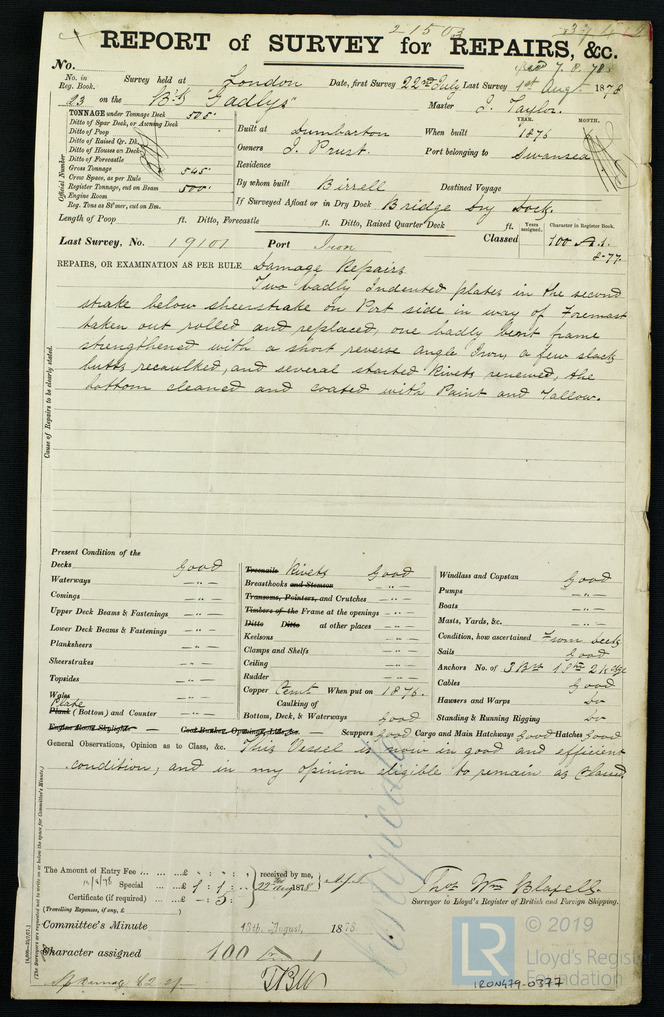 21503
REPORT of SURVEY for REPAIRS, &c.
No.
7. 8. 78
No. in Reg. Book. Survey held at London Date, first Survey 22nd July Last Survey 1st Aug 1878
23 on the Bk "Gadlys" Master J. Taylor.
TONNAGE under Tonnage Deck 505
Ditto of Spar Deck, or Awning Deck
Ditto of Poop
Ditto of Raised Qr. Dk.
Ditto of Houses on Deck
Ditto of Forecastle
Gross Tonnage 545
Crew Space, as per Rule
Register Tonnage, cut on Beam 500
Engine Room
Reg. Tons as St'mer, cut on Bm.
Official Number
YEAR. MONTH.
Built at Dumbarton When built 1876
Owners J. Prust. Port belonging to Swansea
Residence
By whom built Birrell Destined Voyage
If Surveyed Afloat or in Dry Dock Bridge Dry Dock.
Length of Poop ft. Ditto, Forecastle ft. Ditto, Raised Quarter Deck ft.
Years assigned. Character in Register Book.
Last Survey, No. 19101 Port Iron Classed 100 A.1.
8-77
REPAIRS, OR EXAMINATION AS PER RULE Damage Repairs
Two badly Indented plates in the second
strake below sheerstrake on Port side in way of Foremast
taken out rolled and replaced, one badly bent frame
strengthened with a short reverse angle Iron, a few slack
butts recaulked, and several started Rivets renewed, the
bottom cleaned and coated with Paint and Tallow.
Cause of Repairs to be clearly stated.
Present Condition of the
Decks Good
Waterways — " —
Comings — " —
Upper Deck Beams & Fastenings — " —
Lower Deck Beams & Fastenings — " —
Planksheers — " —
Sheerstrakes — " —
Topsides — " —
Wales
Plate
Plank (Bottom) and Counter — " —
Engine Room Skylights — Coal Bunker Openings, Lids, &c. —
Treenails Rivets Good
Breasthooks and Stemson — " —
Transoms, Pointers, and Crutches — " —
Timbers of the Frame at the openings — " —
Ditto Ditto at other places — " —
Keelsons — " —
Clamps and Shelfs — " —
Ceiling — " —
Rudder — " —
Copper Cemt When put on 1876.
Caulking of
Bottom, Deck, & Waterways Good
Windlass and Capstan Good
Pumps — " —
Boats — " —
Masts, Yards, &c. — " —
Condition, how ascertained From deck
Sails Good
Anchors No. of 3 Br 1 St 2 Kedge
Cables Good
Hawsers and Warps Do
Standing & Running Rigging Do
Scuppers Good Cargo and Main Hatchways Good Hatches Good
General Observations, Opinion as to Class, &c. This Vessel is now in good and efficient
condition, and in my opinion eligible to remain as Classed.
(The Surveyors are requested not to write on or below the space for Committee's Minute.)
The Amount of Entry Fee £ : : received by me,
Special £ 1 : 1 : 22nd Aug 1878
Certificate (if required) £ - : 5 :
(Travelling Expenses, if any, £ )
Thos Wm Blaxell.
Surveyor to Lloyd's Register of British and Foreign Shipping.
Committee's Minute 13th August, 1878.
Character assigned 100 A
© 2019
LR Lloyd's Register
Foundation
IRON479-0377